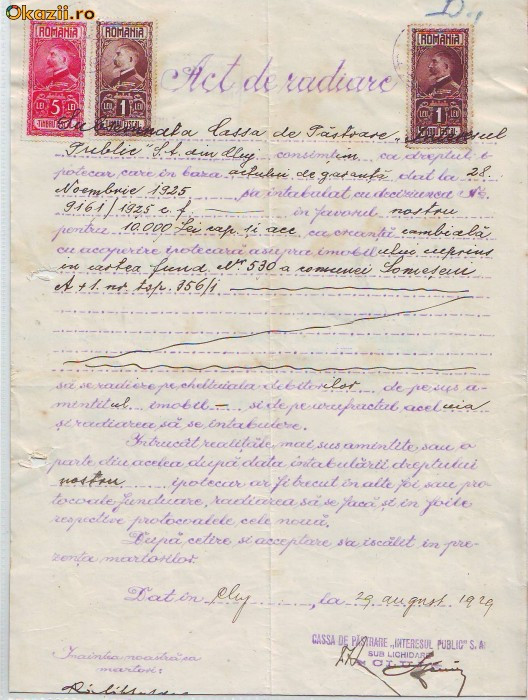 Okazii.ro
ROMANIA
ROMANIA
ROMANIA
5 LEI LEI
1 LEI LEI
1 LEI LEI
TIMBRU FISCAL
TIMBRU FISCAL
TIMBRU FISCAL
Act de radiare
Subsemnata Cassa de Păstrare „Interesul
Public" S.A. din Cluj consimtim ca dreptul i-
potecar, care in baza actului de garanță dat la 28.
Noembrie 1925 s'a intabulat cu deciziunea No.
9161/1925 c. f. in favorul nostru
pentru 10.000 Lei cap. și acc. ca creanță cambială
cu acoperire ipotecară asupra imobilului cuprins
in cartea fund. Nro 530 a comunei Someșeu
A + 1. nr. top. 356/1
să se radieze pe cheltuiala debitorilor de pe sus a-
mintitul imobil – și de pe urufructul aceluia
și radiarea să se intabuleze.
Intrucât realitățile mai sus amintite sau o
parte din acelea după data intabulării dreptului
nostru ipotecar ar fi trecut in alte foi sau pro-
tocoale funduare, radiarea să se facă și in foile
respective protocoalele cele nouă.
După cetire și acceptare s'a iscălit in pre-
zența martorilor.
Dat in Cluj, la 29 august 1929
CASSA DE PĂSTRARE „INTERESUL PUBLIC" S. A.
SUB LICHIDARE
CLUJ
Inaintea noastră ca
martori: